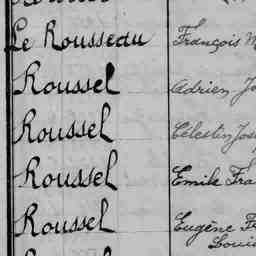 Le Rousseau François
Roussel Adrien
Roussel Célestin
Roussel Emile
Roussel Eugène
Louis